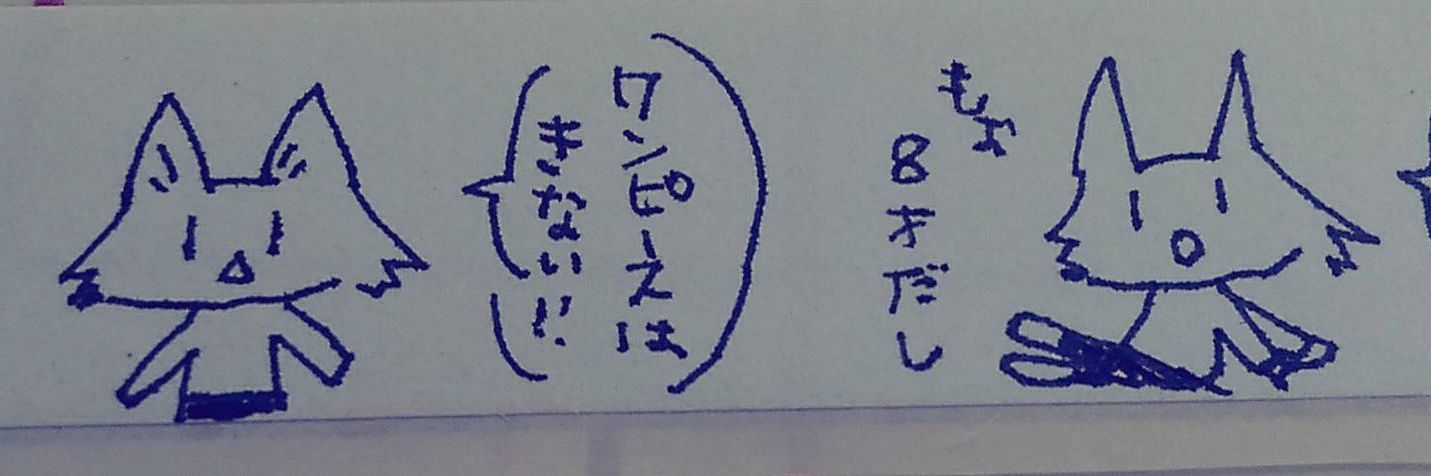 8才だし
ワンピーえは
きない!!